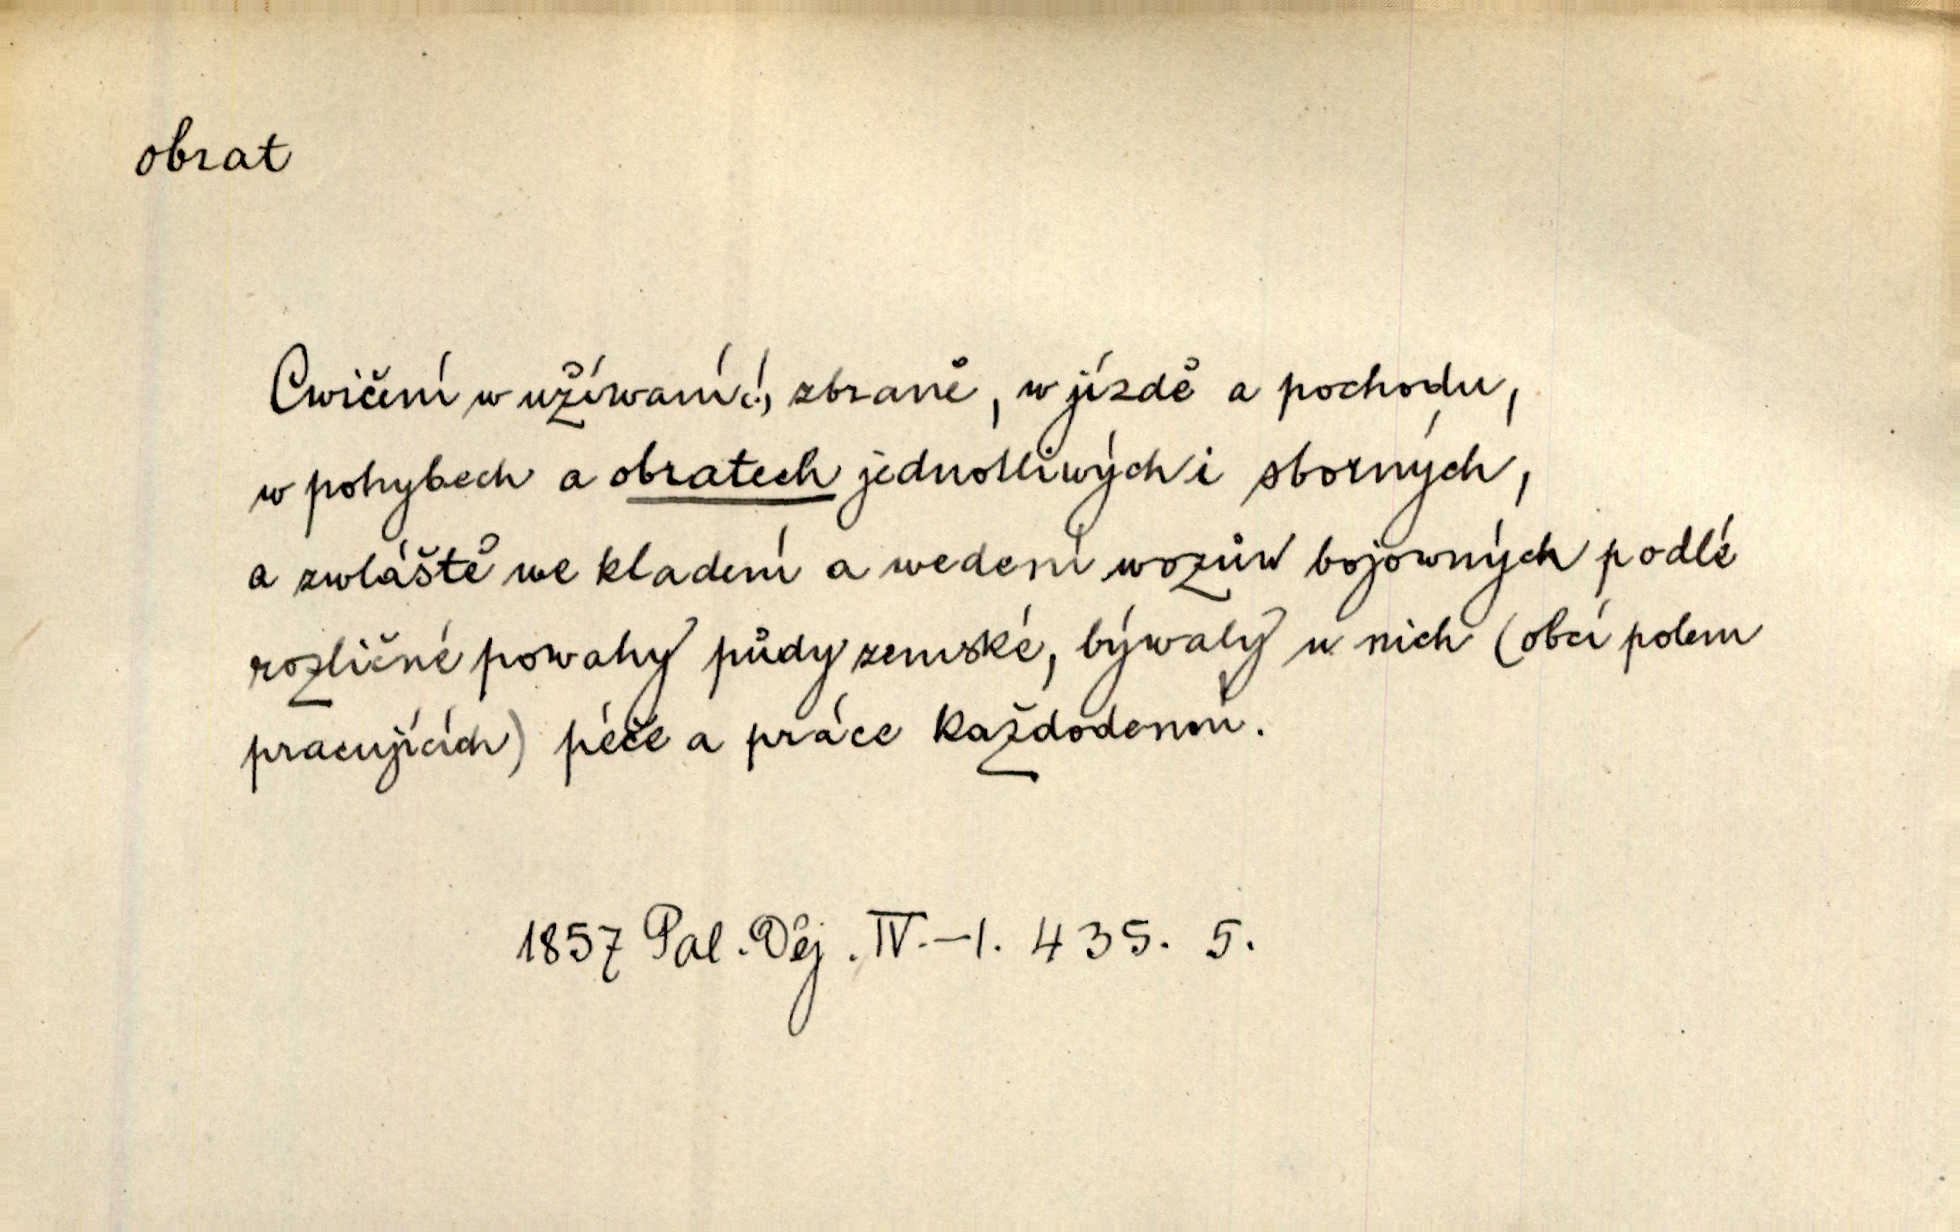 obrat
Cwičení w užíwaní(!) zbraně, w jízdě a pochodu,
w pohybech a obratech jednotliwých i sborných,
a zwláště we kladení a wedení wozůw bojowných podlé
rozličné powahy půdy zemské, býwaly u nich (obcí polem
pracujících) péče a práce každodenní.
1857 Pal. Děj. IV.–1. 435. 5.